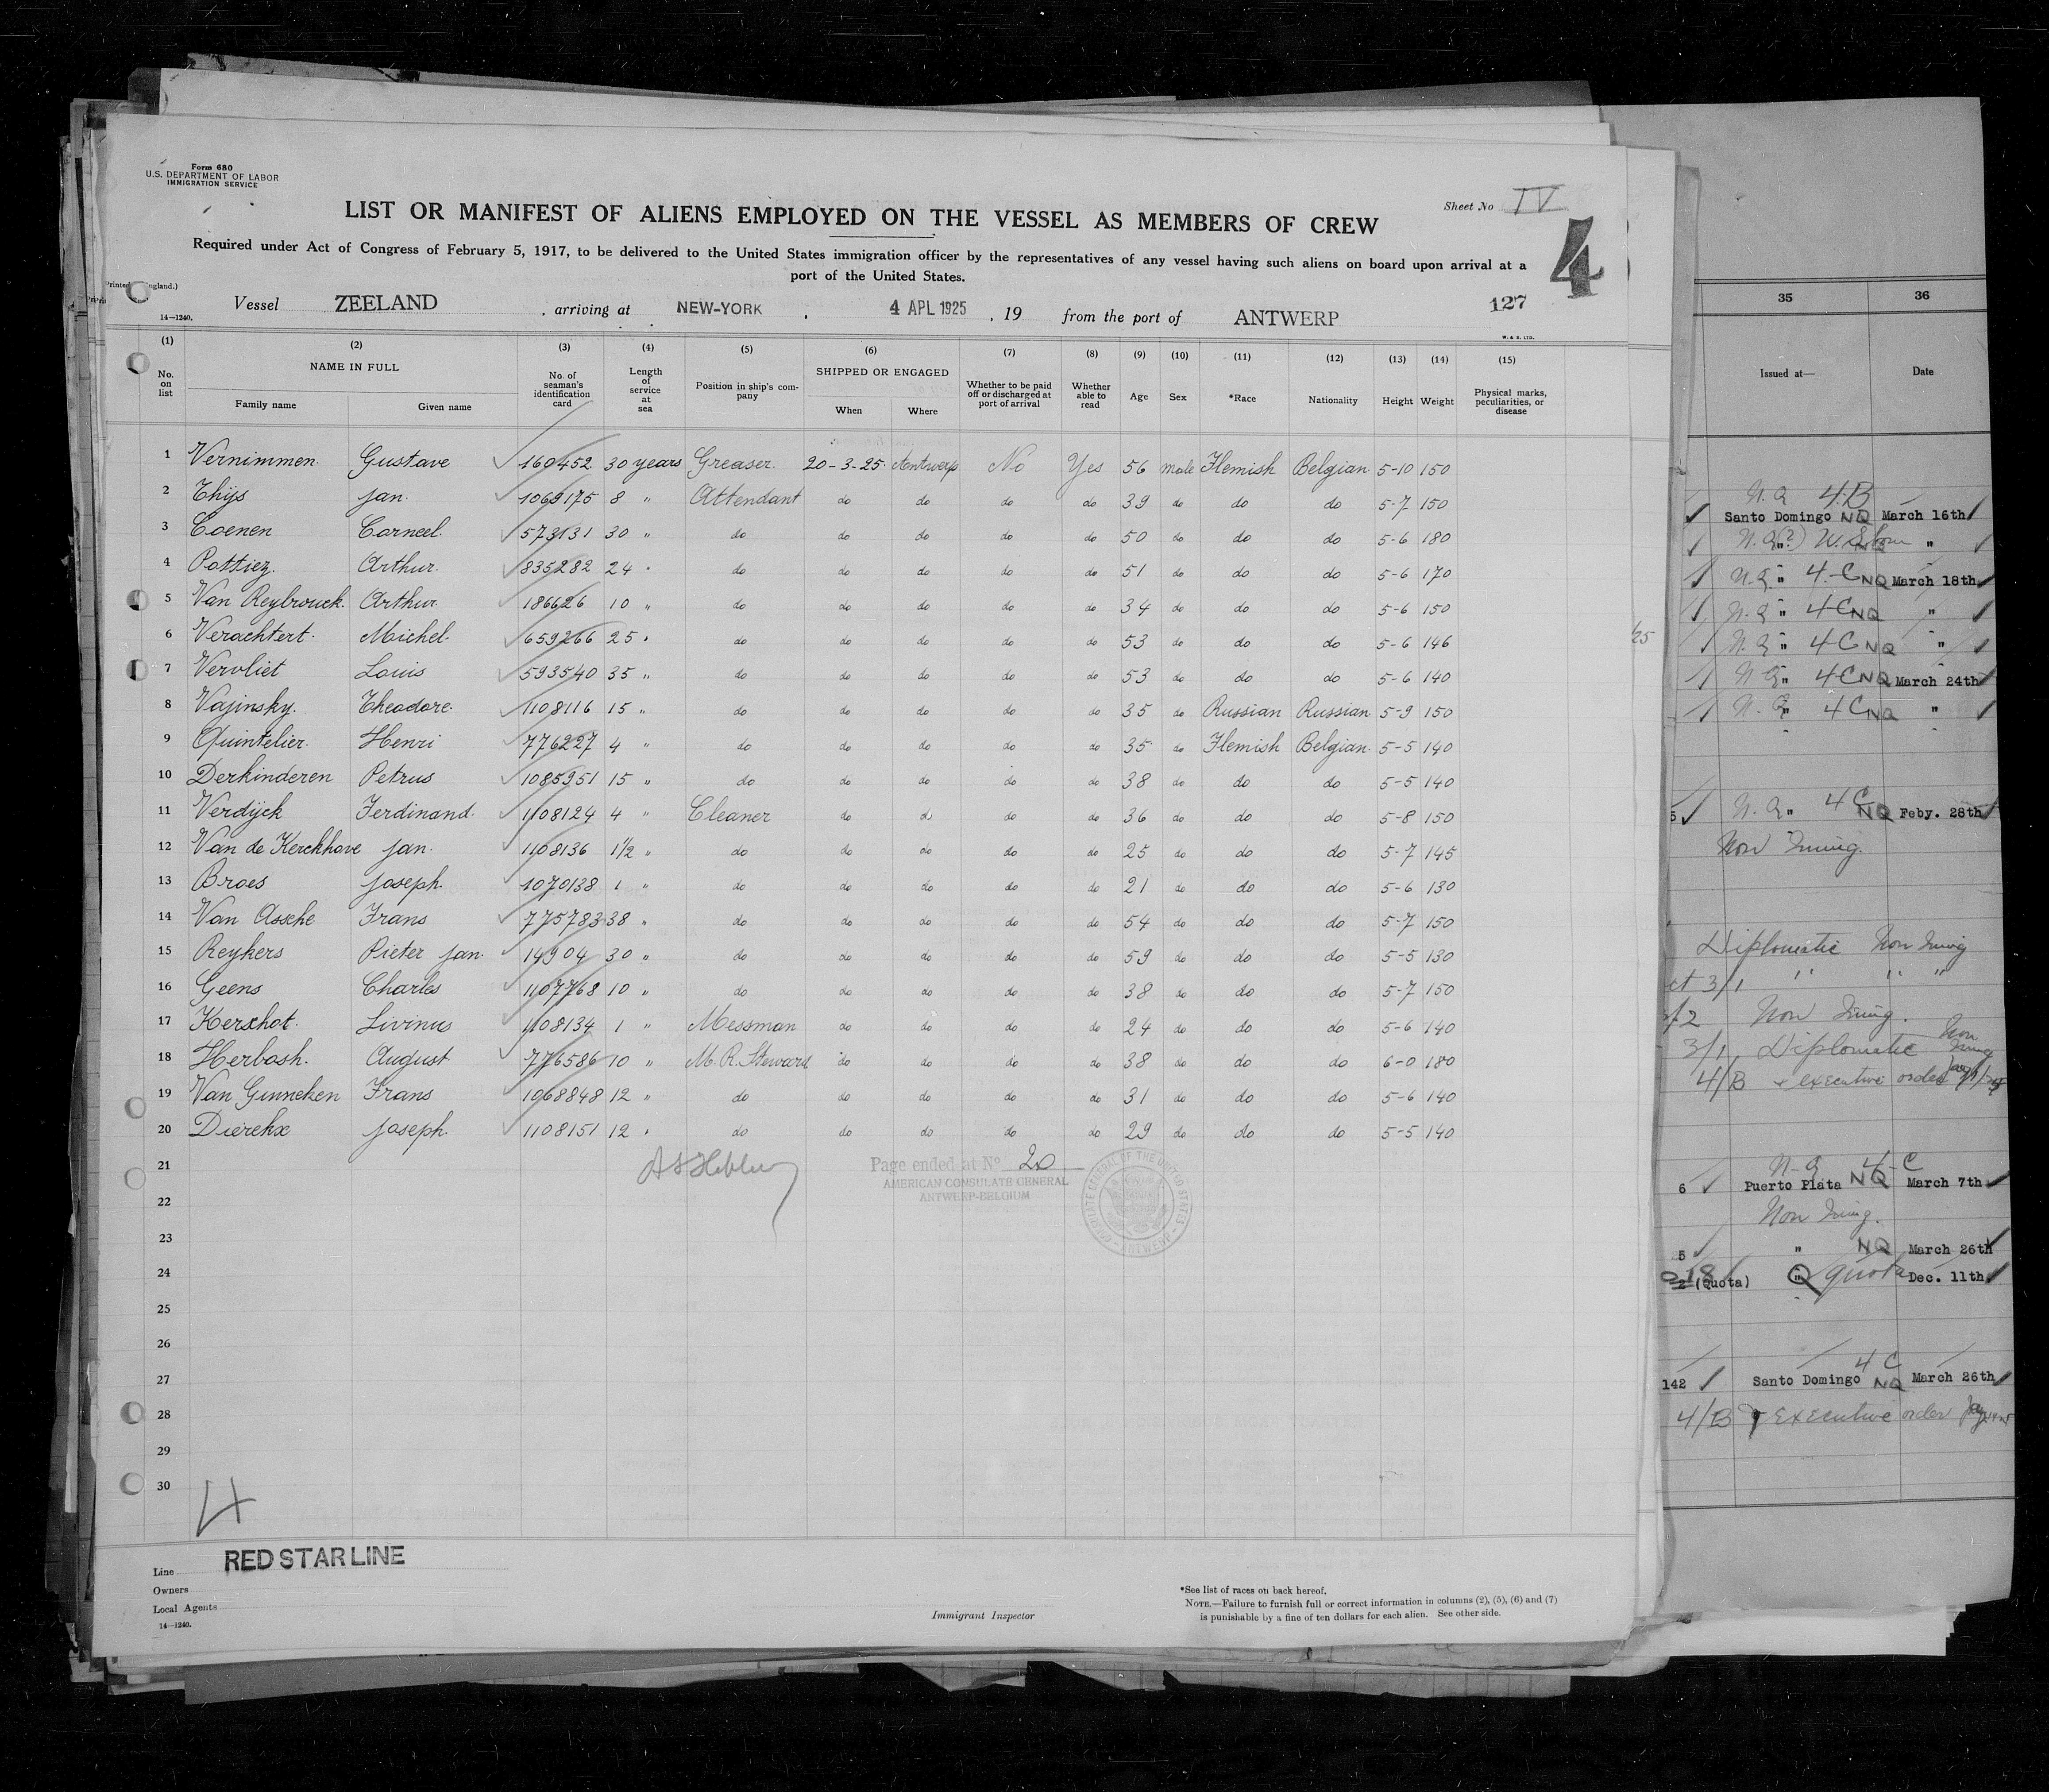 Form 680
U.S. DEPARTMENT OF LABOR
IMMIGRATION SERVICE
Sheet No IV
LIST OR MANIFEST OF ALIENS EMPLOYED ON THE VESSEL AS MEMBERS OF CREW
4
Required under Act of Congress of February 5, 1917, to be delivered to the United States immigration officer by the representatives of any vessel having such aliens on board upon arrival at a
port of the United States.
Vessel ZEELAND , arriving at NEW-YORK , 4 APL 1925 , 19 from the port of ANTWERP 127
14—1240.
W. & S. LTD.
(1) (2) (3) (4) (5) (6) (7) (8) (9) (10) (11) (12) (13) (14) (15)
No. on list NAME IN FULL Family name Given name No. of seaman's identification card Length of service at sea Position in ship's company SHIPPED OR ENGAGED When Where Whether to be paid off or discharged at port of arrival Whether able to read Age Sex *Race Nationality Height Weight Physical marks, peculiarities, or disease
1 Vernimmen Gustave 160452 30 years Greaser 20-3-25 Antwerp No Yes 56 male Flemish Belgian 5-10 150
2 Thijs Jan. 1069175 8 " Attendant do do do do 39 do do do 5-7 150
3 Coenen Corneel. 573131 30 " do do do do do 50 do do do 5-6 180
4 Pottiez Arthur. 835282 24 " do do do do do 51 do do do 5-6 170
5 Van Reybrouck. Arthur 186626 10 " do do do do do 34 do do do 5-6 150
6 Verachtert. Michel. 659266 25 " do do do do do 53 do do do 5-6 146
7 Vervliet Louis 593540 35 " do do do do do 53 do do do 5-6 140
8 Vajinsky. Theodore. 1108116 15 " do do do do do 35 do Russian Russian 5-9 150
9 Quintelier. Henri 776227 4 " do do do do do 35 do Flemish Belgian 5-5 140
10 Derkinderen Petrus 1085951 15 " do do do do do 38 do do do 5-5 140
11 Verdijck Ferdinand. 1108124 4 " Cleaner do do do do 36 do do do 5-8 150
12 Van de Kerckhove Jan. 1108136 1½ " do do do do do 25 do do do 5-7 145
13 Broes Joseph. 1070138 1 " do do do do do 21 do do do 5-6 130
14 Van Assche Frans 775783 38 " do do do do do 54 do do do 5-7 150
15 Reykers Pieter Jan. 14904 30 " do do do do do 59 do do do 5-5 130
16 Geens Charles 1107768 10 " do do do do do 38 do do do 5-7 150
17 Kerschot. Livinus 1108134 1 " Messman do do do do 24 do do do 5-6 140
18 Herbosh. August 776586 10 " M.R. Steward do do do do 38 do do do 6-0 180
19 Van Ginneken Frans 1068848 12 " do do do do do 31 do do do 5-6 140
20 Dierckx Joseph. 1108151 12 " do do do do do 29 do do do 5-5 140
21
Page ended at No 20
AMERICAN CONSULATE GENERAL
ANTWERP-BELGIUM
22
23
24
25
26
27
28
29
30
4
Line RED STAR LINE
Owners
Local Agents
14—1240.
Immigrant Inspector
*See list of races on back hereof.
NOTE.—Failure to furnish full or correct information in columns (2), (5), (6) and (7)
is punishable by a fine of ten dollars for each alien. See other side.
35 36
Issued at— Date
N.Q 4.B
Santo Domingo NQ March 16th
N.Q "
N.Q " 4-C NQ March 18th
N.Q " 4C NQ "
N.Q " 4C NQ "
N Q " 4C NQ March 24th
N.Q " 4C NQ "
5 N.Q " 4C NQ Feby. 28th
Non Immig.
Diplomatic Non Immig
3/1 " " "
Non Immig.
3/1 Diplomatic Non Immig
4/B + executive order
N-Q 4-C
6 Puerto Plata NQ March 7th
Non Immig.
5 " NQ March 26th
(Quota) " Q quota Dec. 11th
4 C
142 Santo Domingo NQ March 26th
4/B + Executive order